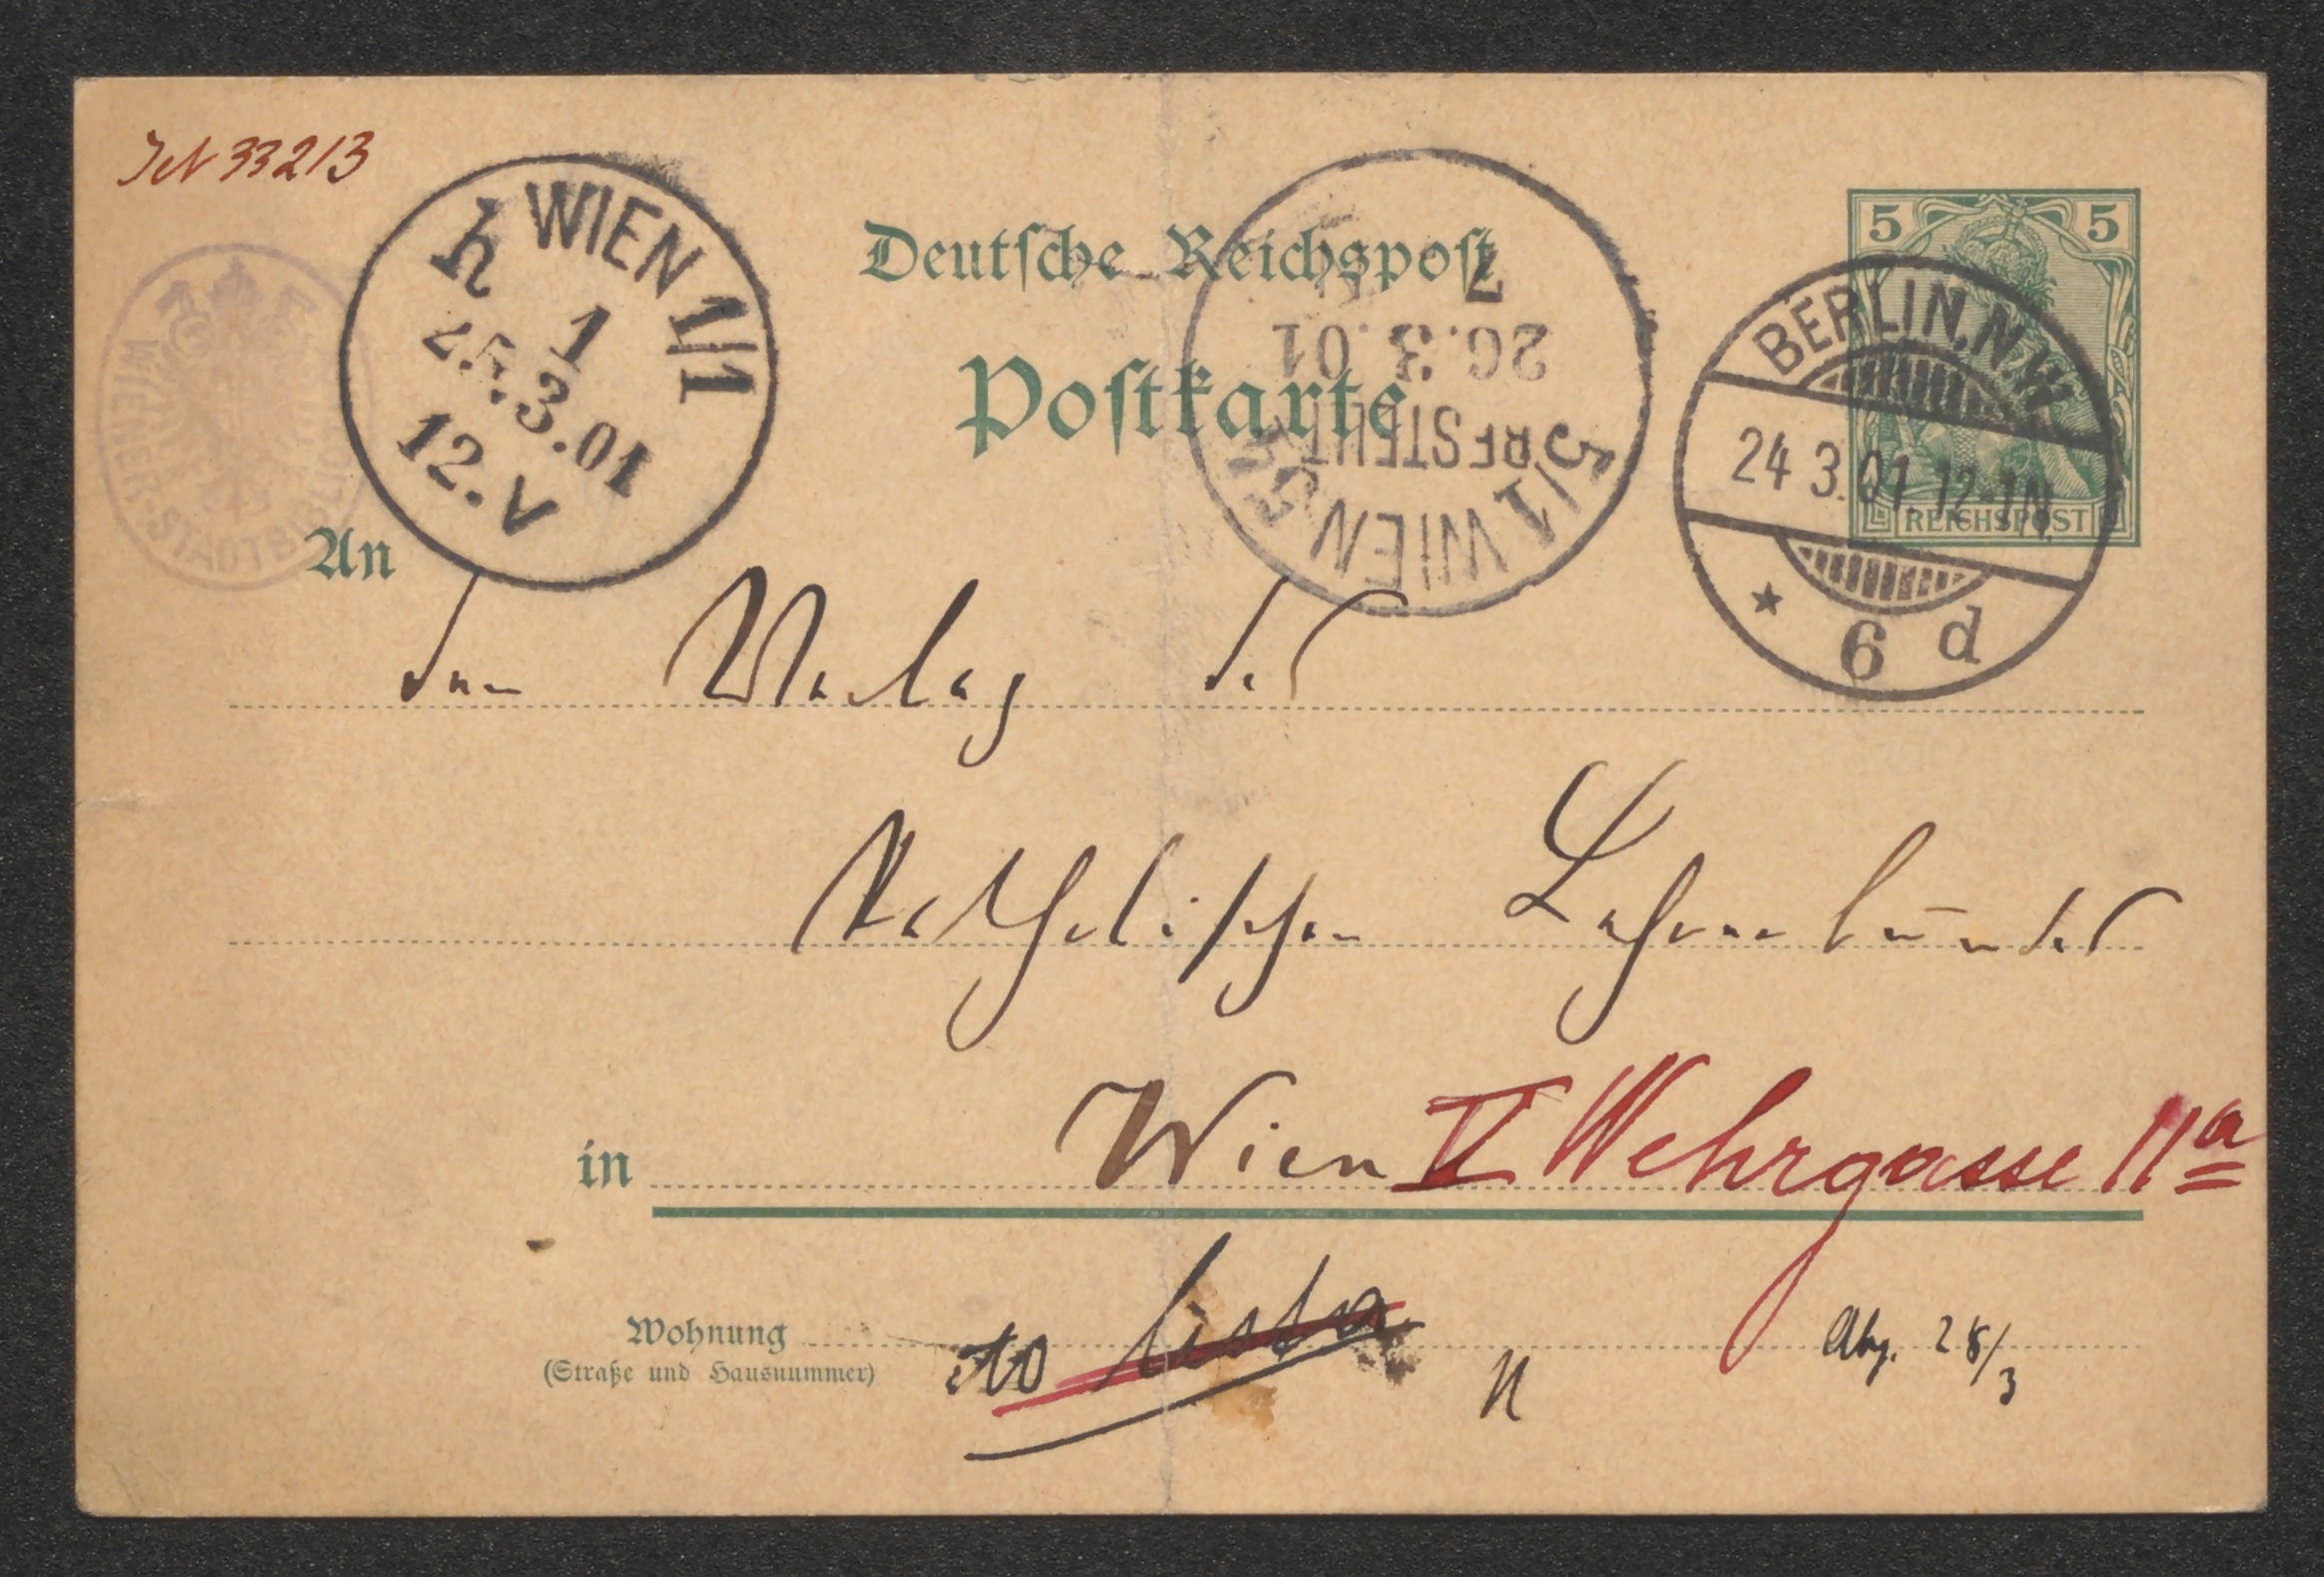 JN 33213
h WIEN 1/1
1
25.3.01
12.V
WIENER·STADTBIBLIO
Deutſche Reichspoſt
Poſtkarte
5/1 WIEN 51
BESTELLT
26.3.01
7
5 5
REICHSPOST
BERLIN, N.W
24 3.01. 12-1N.
* 6 d
An
den Verlag des
Katholischen Lehrerbundes
in Wien V Wehrgasse 11a
Wohnung
(Straße und Hausnummer)
N
Abg. 28/3